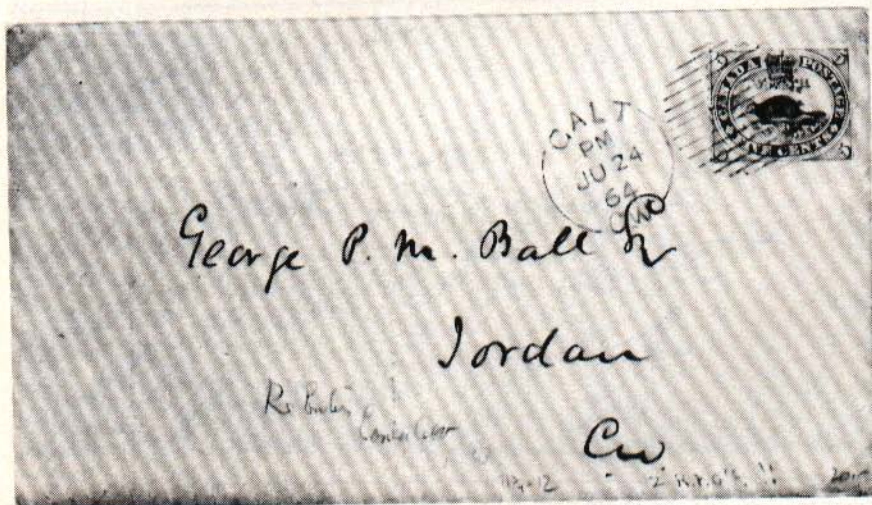 CANADA POSTAGE
FIVE CENTS
GALT
PM
JU 24
64
CW
George P. M. Ball
Jordan
CW